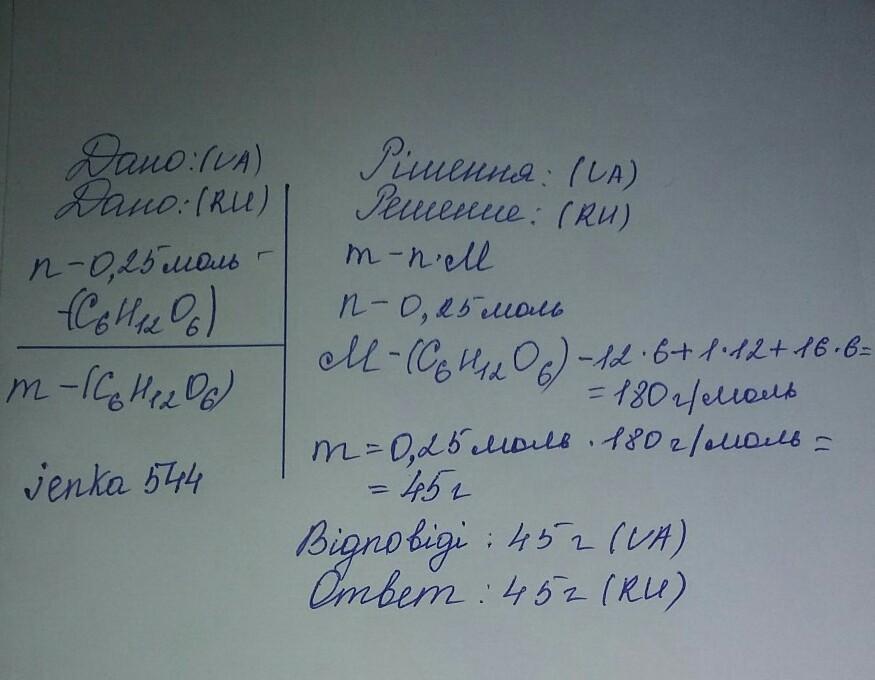 Дано: (UA)
Дано: (RU)
n – 0,25 моль –
–(C₆H₁₂O₆)
m – (C₆H₁₂O₆)
jenka 544
Рішення: (UA)
Решение: (RU)
m – n · M
n – 0,25 моль
M – (C₆H₁₂O₆) – 12 · 6 + 1 · 12 + 16 · 6 =
= 180 г/моль
m = 0,25 моль · 180 г/моль =
= 45 г
Відповіді : 45 г (UA)
Ответ : 45 г (RU)